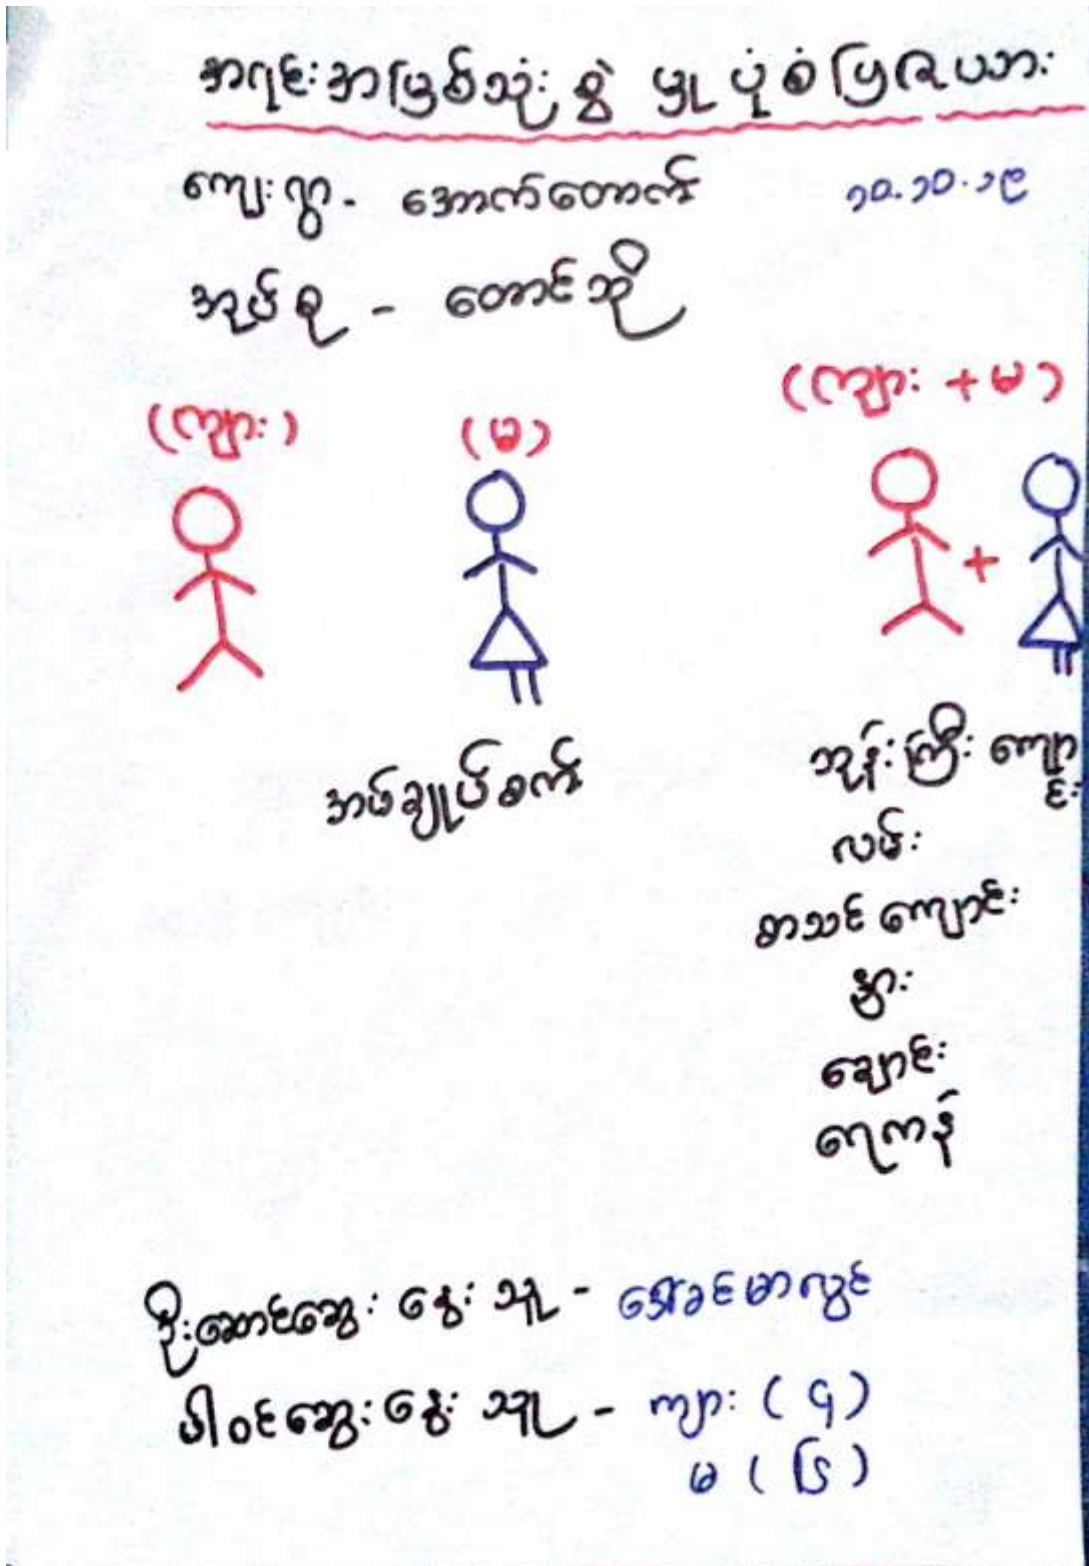 အရင်းအမြစ်သုံးစွဲမှုပုံစံပြဇယား
ကျေးရွာ - အောက်တောက် ၁၀.၁၀.၁၉
အုပ်စု - တောင်ဘို
(ကျား) (မ) (ကျား + မ)
+
အပ်ချုပ်စက် ဘုန်းကြီးကျောင်း
လမ်း
စာသင်ကျောင်း
နွား
ချောင်း
ရေကန်
ဦးဆောင်ဆွေးနွေးသူ - ဒေါ်ခင်မာလွင်
ပါဝင်ဆွေးနွေးသူ - ကျား (၄)
မ (၆)